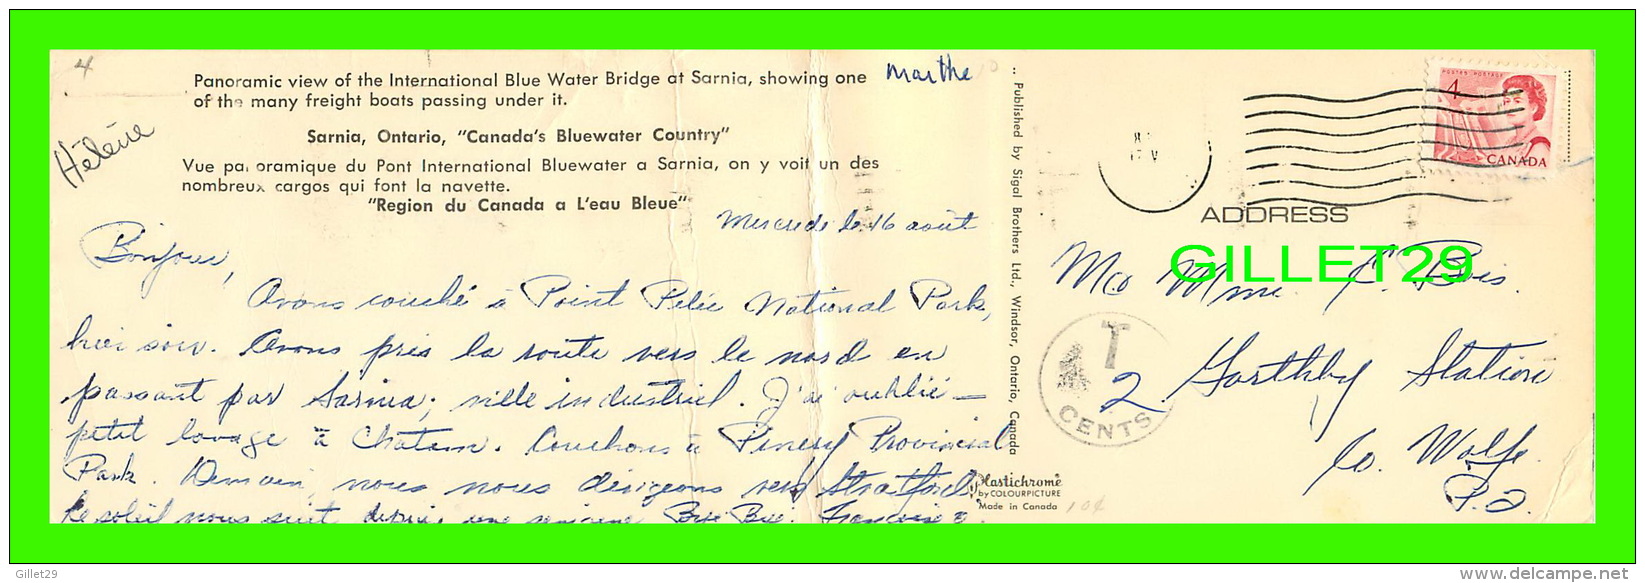 4
Panoramic view of the International Blue Water Bridge at Sarnia, showing one
of the many freight boats passing under it.
Marthe
Hélène
Sarnia, Ontario, "Canada's Bluewater Country"
Vue panoramique du Pont International Bluewater a Sarnia, on y voit un des
nombreux cargos qui font la navette.
"Region du Canada a L'eau Bleue"
Mercredi le 16 août
Bonjour,
Avons couché à Point Pelée National Park,
hier soir. Avons pris la route vers le nord en
passant par Sarnia, ville industriel. J'ai oublié -
petit lavage à Chatam. Couchons à Pinery Provincial
Park. Demain, nous nous dirigeons vers Stratford.
Le soleil nous suit depuis une semaine Bye Bye. Françoise
.. Published by Sigal Brothers Ltd., Windsor, Ontario, Canada
Plastichrome
by COLOURPICTURE
Made in Canada
10¢
POSTES POSTAGE
4
CANADA
ADDRESS
GILLET29
M. Mme Bois.
Garthby Station
Co. Wolfe
P.Q.
T
2
CENTS
Gillet29
http://www.delcampe.net